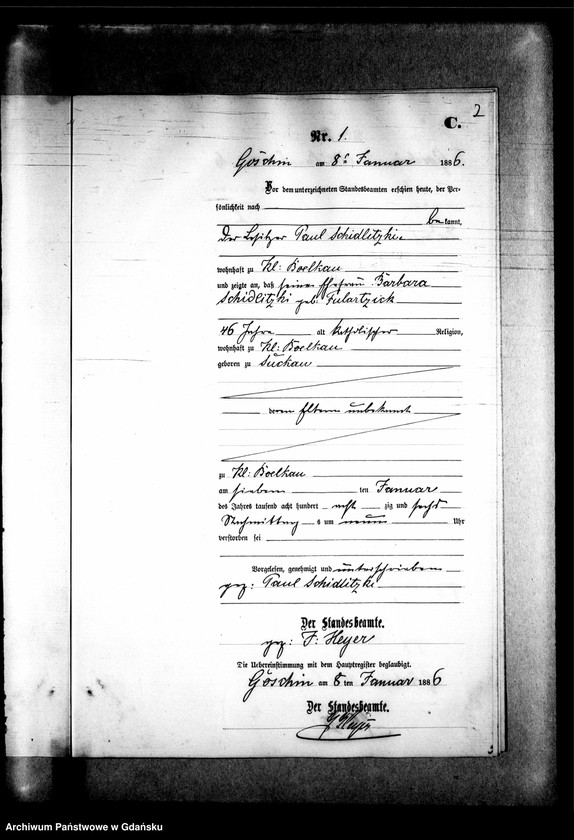 2
C.
Nr. 1.
Göschin am 8ᵗ Januar 1886.
Vor dem unterzeichneten Standesbeamten erschien heute, der Per-
sönlichkeit nach
bekannt,
Der Besitzer Paul Schidlitzki
wohnhaft zu Kl: Boelkau
und zeigte an, daß seine Ehefrau Barbara
Schidlitzki geb: Fulartzick
46 Jahre alt katholischer Religion,
wohnhaft zu Kl: Boelkau
geboren zu Suckau
deren Eltern unbekannt
zu Kl: Boelkau
am sieben ten Januar
des Jahres tausend acht hundert acht zig und sechs
Nachmittag s um neun Uhr
verstorben sei
Vorgelesen, genehmigt und unterschrieben
gez: Paul Schidlitzki
Der Standesbeamte.
gez: F. Heyer
Die Uebereinstimmung mit dem Hauptregister beglaubigt.
Göschin am 8 ten Januar 1886
Der Standesbeamte.
Heyer
3
Archiwum Państwowe w Gdańsku